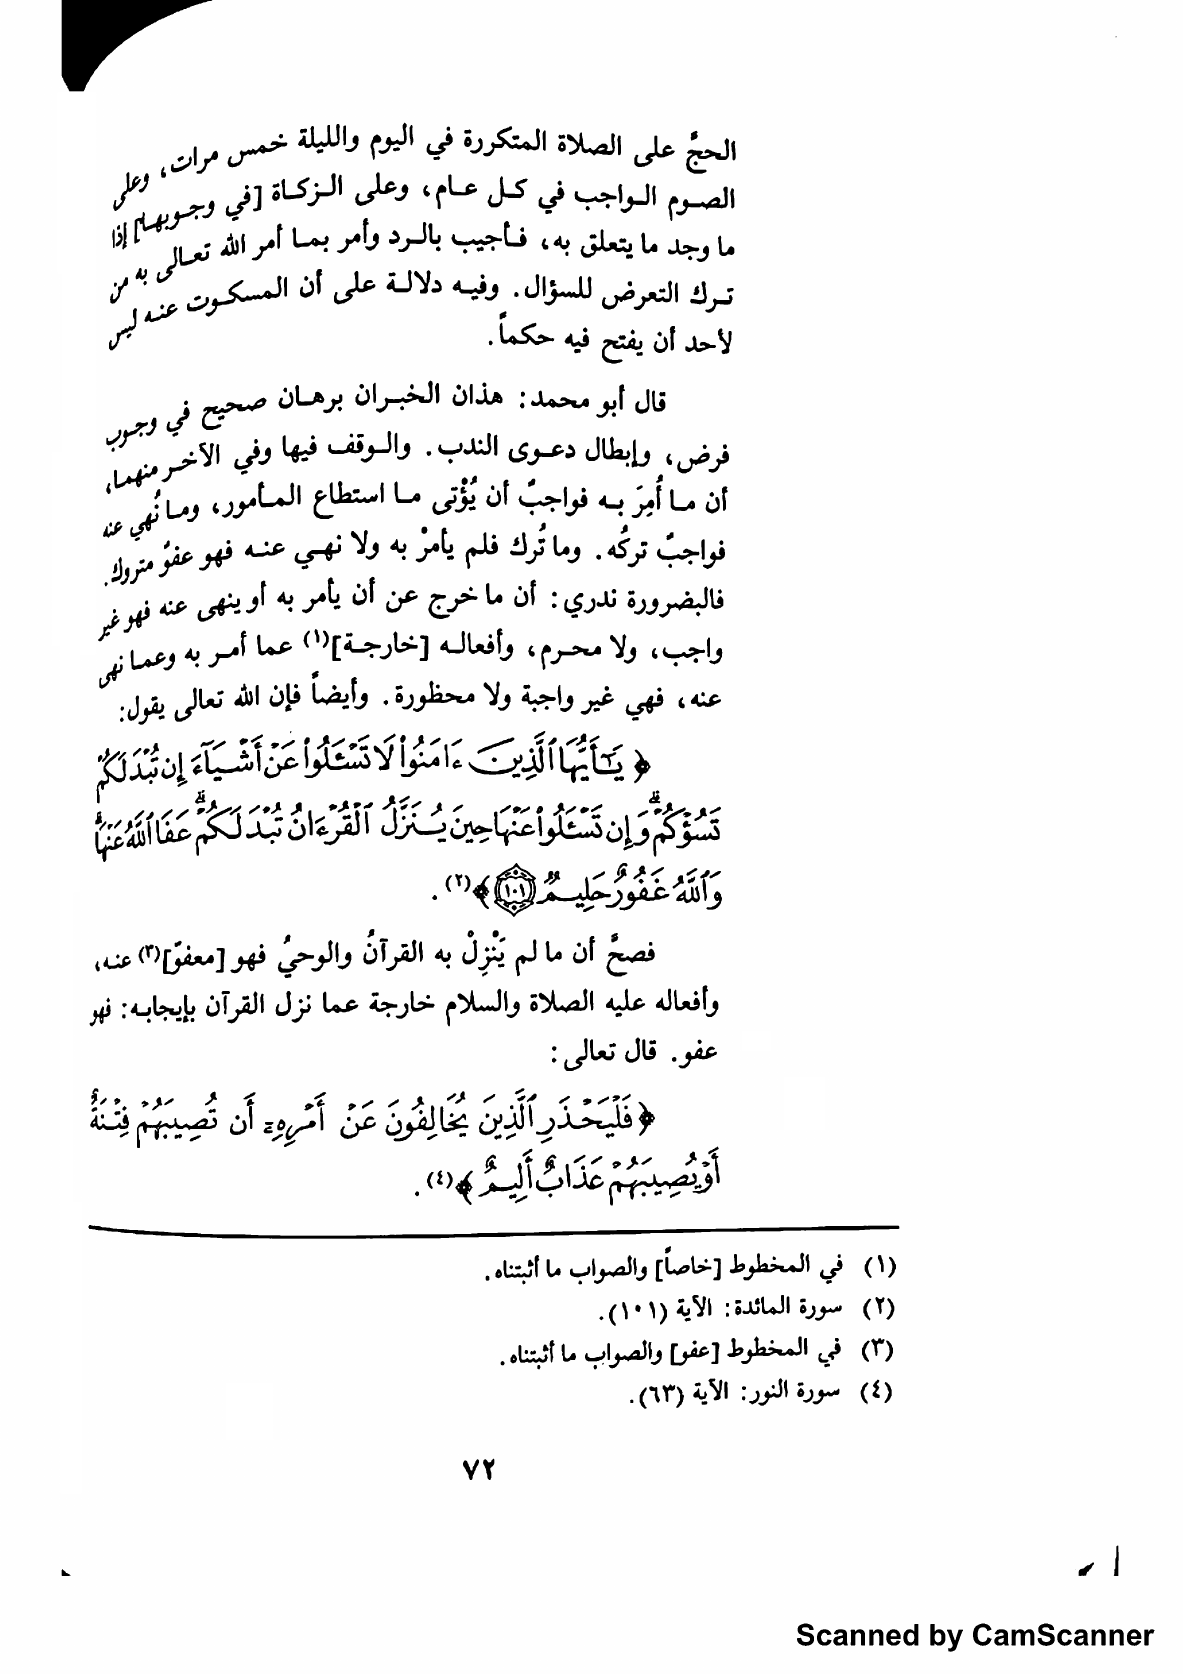 الحجَّ على الصلاة المتكررة في اليوم والليلة خمس مرات، وعلى
الصوم الواجب في كل عام، وعلى الزكاة [في وجوبها] إذا
ما وجد ما يتعلق به، فأجيب بالرد وأمر بما أمر الله تعالى به من
ترك التعرض للسؤال. وفيه دلالة على أن المسكوت عنه ليس
لأحد أن يفتح فيه حكماً.
قال أبو محمد: هذان الخبران برهان صحيح في وجوب
فرض، وإبطال دعوى الندب. والوقف فيها وفي الآخر منهما،
أن ما أُمِرَ به فواجبٌ أن يُؤْتى ما استطاع المأمور، وما نُهي عنه
فواجبٌ تركُه. وما تُرك فلم يأمرْ به ولا نهي عنه فهو عفوٌ متروك.
فالبضرورة ندري: أن ما خرج عن أن يأمر به أو ينهى عنه فهو غير
واجب، ولا محرم، وأفعاله [خارجة](١) عما أمر به وعما نهى
عنه، فهي غير واجبة ولا محظورة. وأيضاً فإن الله تعالى يقول:
﴿ يَٰٓأَيُّهَا ٱلَّذِينَ ءَامَنُوا۟ لَا تَسْـَٔلُوا۟ عَنْ أَشْيَآءَ إِن تُبْدَ لَكُمْ
تَسُؤْكُمْ ۖ وَإِن تَسْـَٔلُوا۟ عَنْهَا حِينَ يُنَزَّلُ ٱلْقُرْءَانُ تُبْدَ لَكُمْ ۗ عَفَا ٱللَّهُ عَنْهَا ۗ
وَٱللَّهُ غَفُورٌ حَلِيمٌ ١٠١ ﴾(٢).
فصحَّ أن ما لم يَنْزِلْ به القرآنُ والوحيُ فهو [معفوّ](٣) عنه،
وأفعاله عليه الصلاة والسلام خارجة عما نزل القرآن بإيجابه: فهو
عفو. قال تعالى:
﴿ فَلْيَحْذَرِ ٱلَّذِينَ يُخَالِفُونَ عَنْ أَمْرِهِۦٓ أَن تُصِيبَهُمْ فِتْنَةٌ
أَوْ يُصِيبَهُمْ عَذَابٌ أَلِيمٌ ﴾(٤).
(١) في المخطوط [خاصاً] والصواب ما أثبتناه.
(٢) سورة المائدة: الآية (١٠١).
(٣) في المخطوط [عفو] والصواب ما أثبتناه.
(٤) سورة النور: الآية (٦٣).
٧٢
Scanned by CamScanner